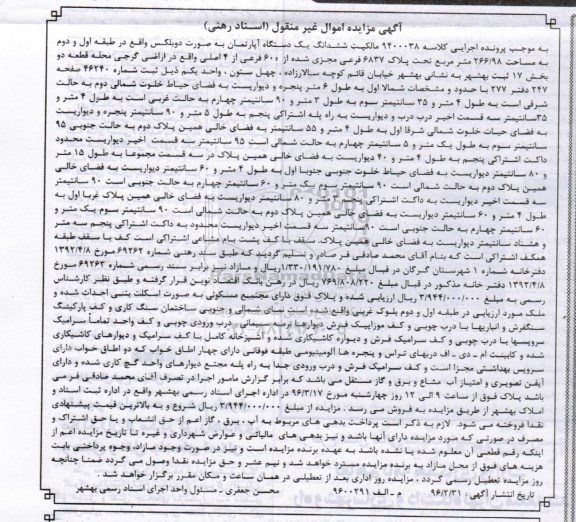 آگهی مزایده اموال غیر منقول (اسناد رهنی)
به موجب پرونده اجرایی کلاسه ۹۴۰۰۰۳۸ مالکیت ششدانگ یک دستگاه آپارتمان به صورت دوبلکس واقع در طبقه اول و دوم
به مساحت ۲۶۶/۹۸ متر مربع تحت پلاک ۶۸۳۷ فرعی مجزی شده از ۶۰۰ فرعی از ۴ اصلی واقع در اراضی گرجی محله قطعه دو
بخش ۱۷ ثبت بهشهر به نشانی بهشهر خیابان قائم کوچه سالارزاده، چهل ستون، واحد یکم ذیل ثبت شماره ۴۶۲۴۰ صفحه
۲۴۷ دفتر ۲۷۷ با حدود و مشخصات شمالا اول به طول ۶ متر پنجره و دیواریست به فضای حیاط خلوت شمالی دوم به حالت
شرقی است به طول ۴ متر و ۳۵ سانتیمتر سوم به طول ۳ متر و ۹۰ سانتیمتر چهارم به حالت غربی است به طول ۴ متر و
۳۵سانتیمتر سه قسمت اخیر درب درب و دیواریست به راه پله اشتراکی پنجم به طول ۵ متر و ۹۰ سانتیمتر پنجره و دیواریست
به فضای حیات خلوت شمالی شرقا اول به طول ۴ متر و ۵۵ سانتیمتر به فضای خالی همین پلاک دوم به حالت جنوبی ۹۵
سانتیمتر سوم به طول یک متر و ۵ سانتیمتر چهارم به حالت شمالی است ۹۵ سانتیمتر سه قسمت اخیر دیواریست محدود
داکت اشتراکی پنجم به طول ۴ متر و ۴۰ دیواریست به فضای خالی همین پلاک در سه قسمت مجموعا به طول ۱۵ متر
و ۸۰ سانتیمتر دیواریست به فضای حیاط خلوت جنوبی جنوبا اول به طول ۴ متر و ۶۰ سانتیمتر دیواریست به فضای خالی
همین پلاک دوم به حالت شمالی است ۹۰ سانتیمتر سوم یک متر و ۶۰ سانتیمتر چهارم به حالت جنوبی است ۹۰ سانتیمتر
سه قسمت اخیر دیواریست به داکت اشتراکی پنجم متر و ۸۰ سانتیمتر دیواریست به فضای خالی همین پلاک غربا اول به
طول ۴ متر و ۶۰ سانتیمتر دیواریست به فضای خالی همین پلاک دوم به حالت شمالی است ۹۰ سانتیمتر سوم یک متر و
۶۰ سانتیمتر چهارم به حالت جنوبی است ۹۰ سانتیمتر سه قسمت اخیر دیواریست محدود به داکت اشتراکی پنجم سه متر
و هشتاد سانتیمتر دیواریست به فضای خالی همین پلاک، سقف با کف پشت بام مشاعی اشتراکی است کف با سقف طبقه
همکف اشتراکی است که بنام آقای محمد صادقی فر صادر و تسلیم گردید که طبق سند رهنی شماره ۶۹۲۶۲ مورخ ۱۳۹۲/۴/۸
دفترخانه شماره ۱ شهرستان گرگان در قبال مبلغ ۱/۳۳۰/۱۹۱/۷۸۰ ریال و مازاد نیز برابر سند رسمی شماره ۶۹۲۶۳ مورخ
۱۳۹۲/۴/۸ دفتر خانه مذکور در قبال مبلغ ۷۶۹/۸۰۸/۲۲۰ ریال در رهن بانک اقتصاد نوین قرار گرفته و طبق نظر کارشناس
رسمی به مبلغ ۳/۹۴۴/۰۰۰/۰۰۰ ریال ارزیابی شده و پلاک فوق دارای مجتمع مسکونی به صورت اسکلت بتنی احداث شده و
ملک مورد ارزیابی در طبقه اول و دوم بلوک غربی واقع شده است نمای شمالی و جنوبی ساختمان سنگ کاری و کف پارکینگ
سنگفرش و انباریها با درب چوبی و کف موزاییک فرش دیوارها تراست سیمانی درب ورودی چوبی و کف واحد تماما سرامیک
سرویسها با درب چوبی و کف سرامیک فرش و دیواره کاشیکاری شده و آشپزخانه کامل با کف سرامیک و دیوارهای کاشیکاری
شده و کابینت ام - دی - اف دربهای تراس و پنجره ها آلومینیومی طبقه فوقانی دارای چهار اطاق خواب که دو اطاق خواب دارای
سرویس بهداشتی مجزا است و کف سرامیک فرش و درب ورودی جدا به راه پله مجتمع دیوارهای واحد گچ کاری شده و دارای
آیفن تصویری و امتیاز آب مشاع و برق و گاز مستقل می باشد که برابر گزارش مامور اجرا در تصرف آقای محمد صادقی فر می
باشد پلاک فوق از ساعت ۹ الی ۱۲ روز چهارشنبه مورخ ۹۶/۳/۱۷ در اداره اجرای اسناد رسمی بهشهر واقع در اداره ثبت اسناد و
املاک بهشهر از طریق مزایده به فروش می رسد. مزایده از مبلغ ۳/۹۴۴/۰۰۰/۰۰۰ ریال شروع و به بالاترین قیمت پیشنهادی
نقدا فروخته می شود. لازم به ذکر است پرداخت بدهی های مربوط به آب، برق، گاز اعم از حق انشعاب و یا حق اشتراک و
مصرف در صورتی که مورد مزایده دارای آنها باشد و نیز بدهی های مالیاتی و عوارض شهرداری و غیره تا تاریخ مزایده اعم از
اینکه رقم قطعی آن معلوم شده یا نشده باشد به عهده برنده مزایده است و نیز در صورت وجود مازاد، وجوه پرداختی بابت
هزینه های فوق از محل مازاد به برنده مزایده مسترد خواهد شد و نیم عشر و حق مزایده نقدا وصول می گردد ضمنا چنانچه
روز مزایده تعطیل رسمی گردد، مزایده روز اداری بعد از تعطیلی در همان ساعت و مکان مقرر برگزار خواهد شد.
تاریخ انتشار آگهی: ۹۶/۲/۳۱ م - الف ۹۶۰۰۲۹۱ محسن جعفری - مسئول واحد اجرای اسناد رسمی بهشهر